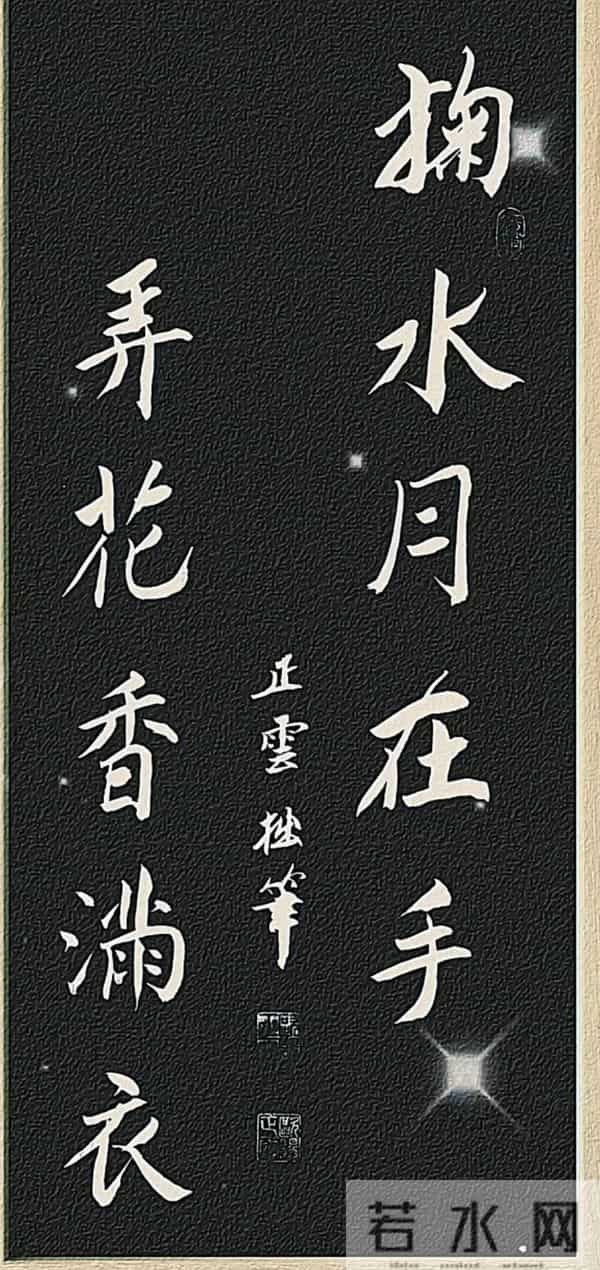 掬水月在手
弄花香滿衣
正雲拙筆
若水网